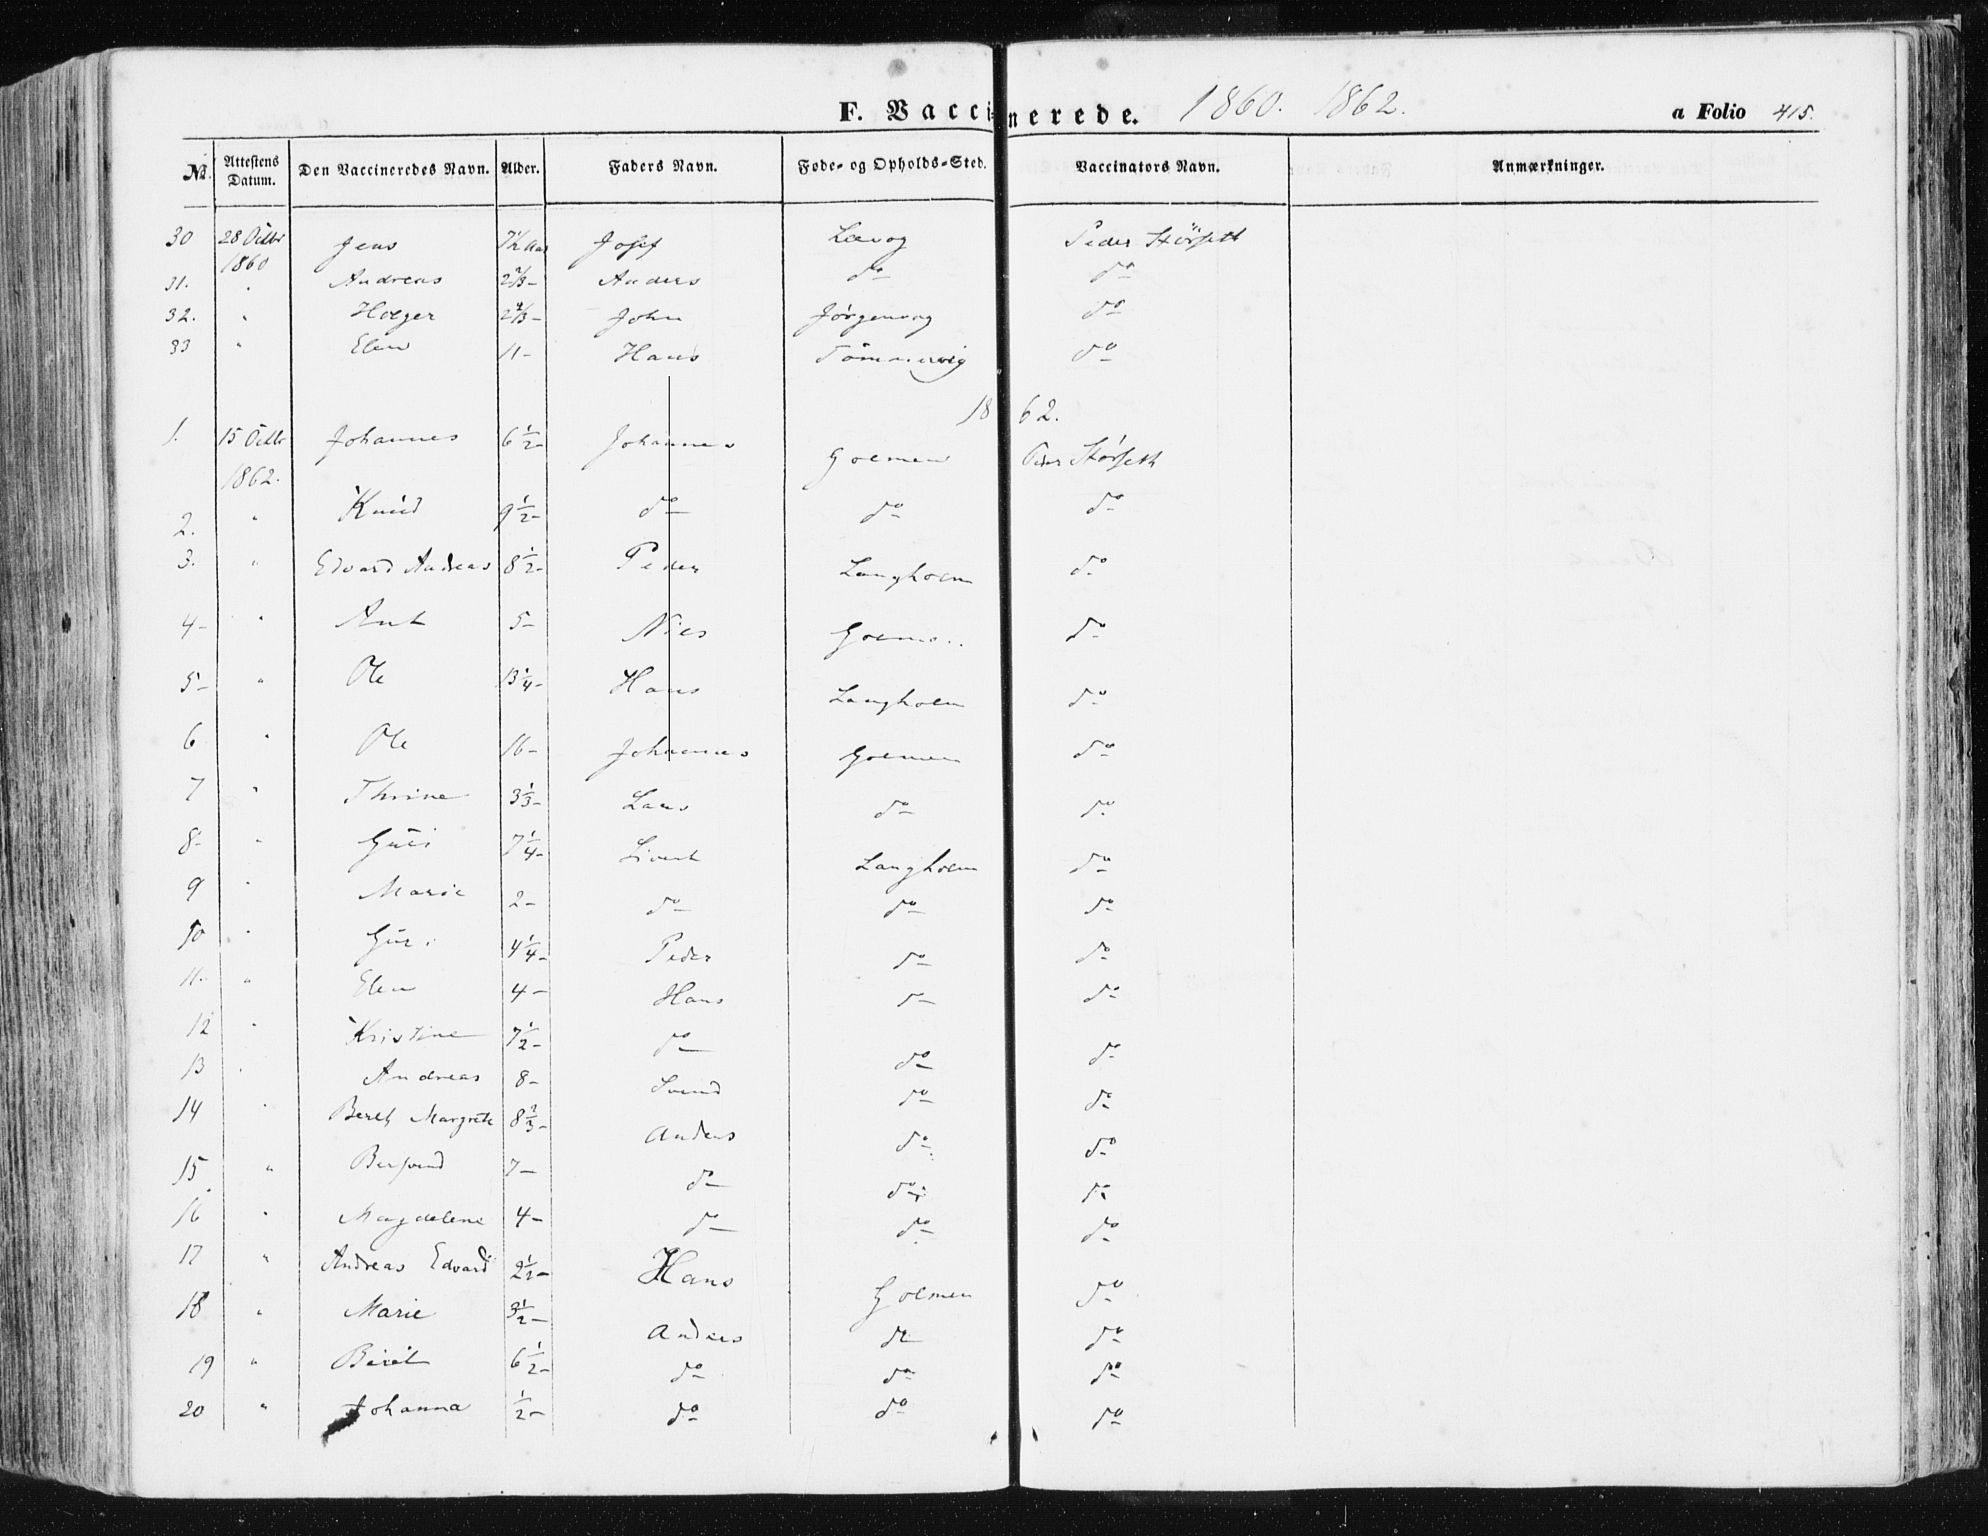 F. Vaccinerede. 1860. 1862. a Folio 415.
No. Attestens Datum. Den Vaccineredes Navn. Alder. Faders Navn. Føde- og Opholds-Sted. Vaccinators Navn. Anmærkninger.
30 28 Octbr 1860 Jens 7½ Aar Josef Lævog Peder Störseth
31. " Andreas 2⅔- Anders do do
32. " Holger John Jörgenvog do
33 " Elen 11- Hans Tömmervig do
1862.
1. 15 Octbr 1862. Johannes 6½- Johannes Golmen Peder Störseth
2. " Knud 9½- do do do
3. " Edvard Andreas 8½- Peder Langholm do
4- " 5- Nils Golmen do
5- " Ole 13¼- Hans Langholm do
6 " Ole 16- Johannes Golmen do
7 " Thrine 3⅓- Lars do do
8- " Guri 7¼- Sivert Langholm do
9 " Marie 2- do do do
10 " Guri 4¼- Peder do do
11. " Elen 4- Hans do do
12 " Kristine 7½- do do do
13 " Andreas 8- Svend do do
14 " Bereth Margrete 8⅔- Anders do do
15 " Bersvend 7- do do do
16 " Magdelene 4- do do do
17 " Andreas Edvard 2½- Hans Golmen do
18 " Marie 3½- Anders do do
19 " Beret 6½- do do do
20 " Johanna ½- do do do